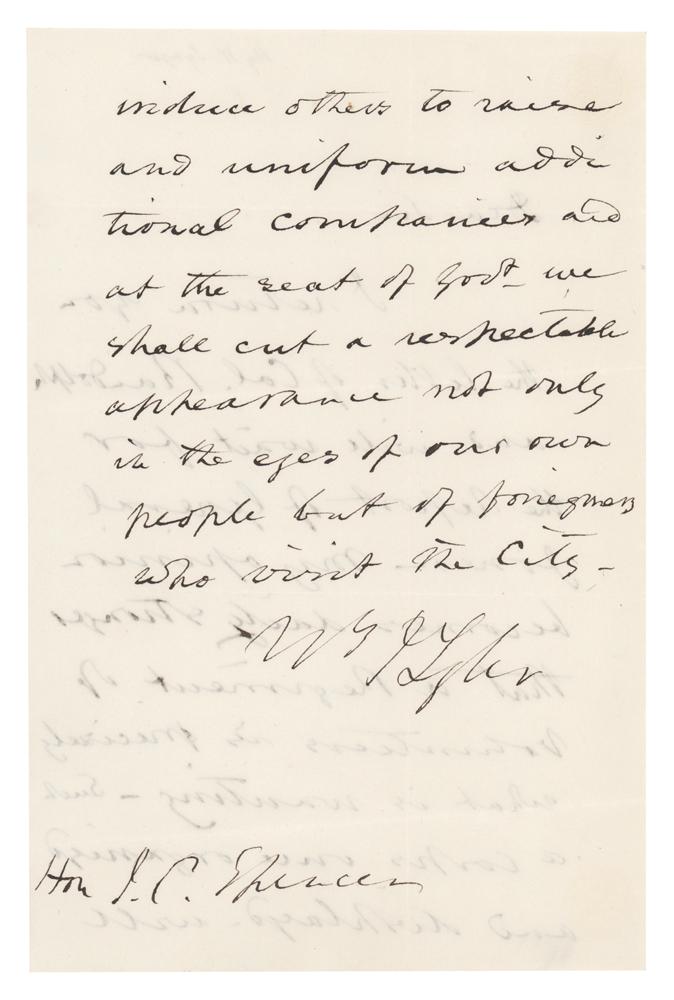 induce others to raise
and uniform addi
tional companies and
at the seat of Govt - we
shall cut a respectable
appearance not only
in the eyes of our own
people but of foreigners
who visit the City -
J Tyler
Hon J. C. Spencer